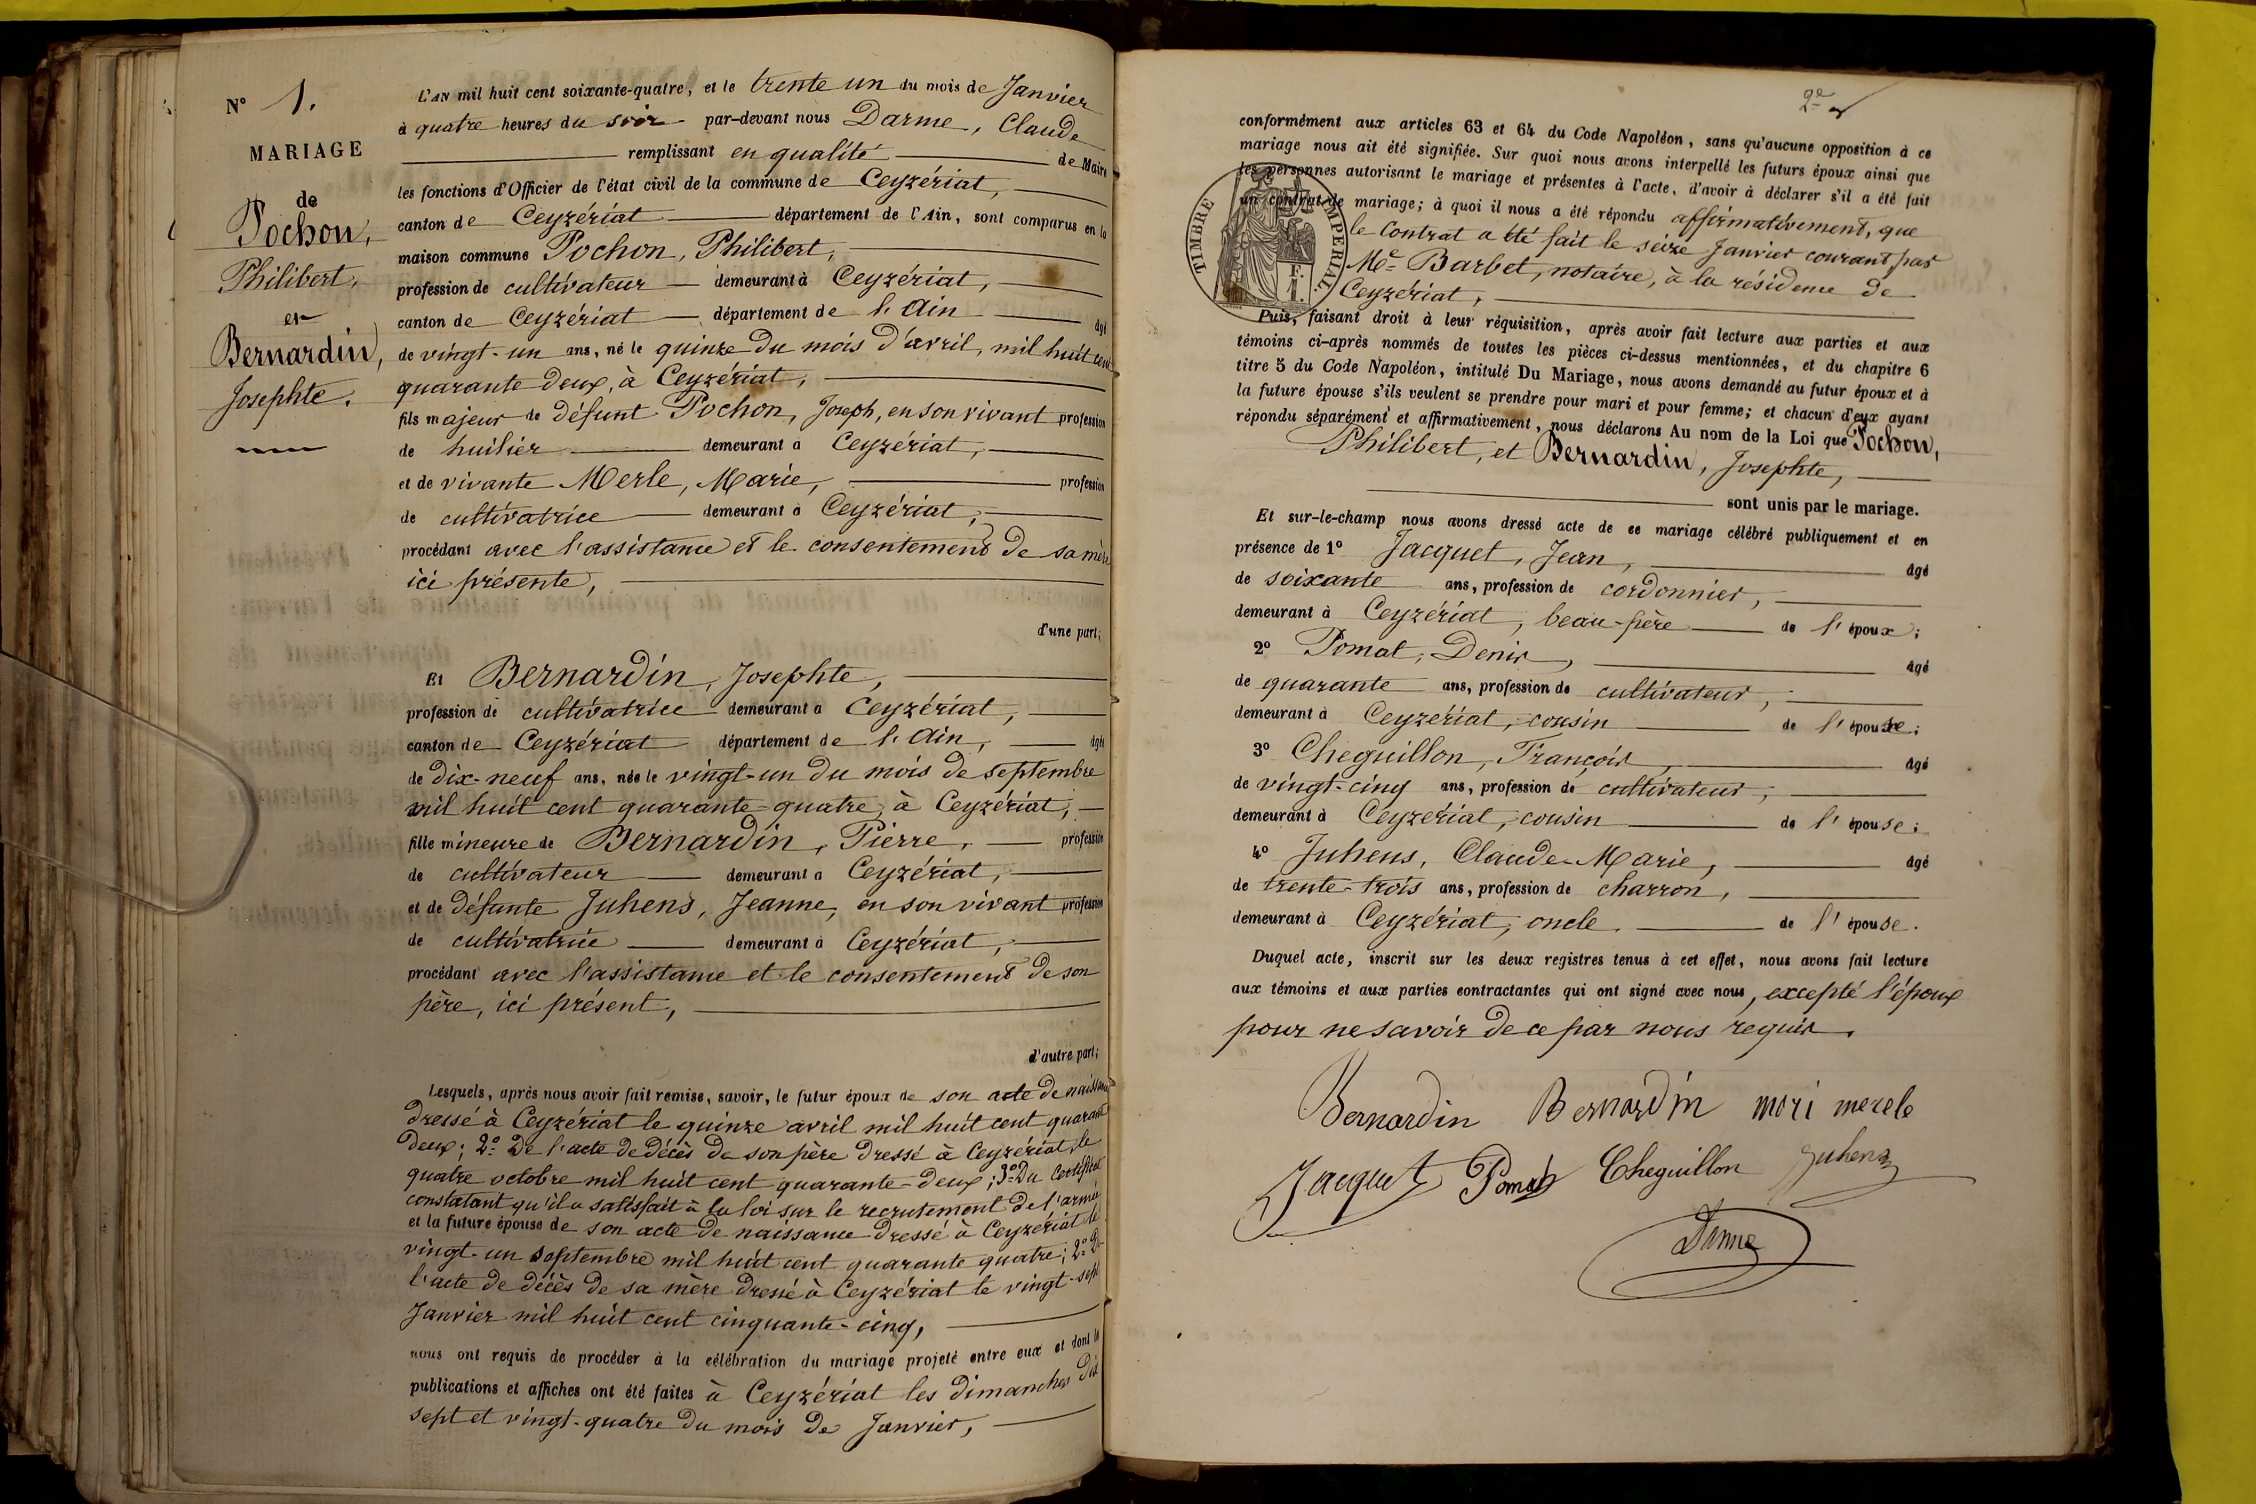 N° 1.
MARIAGE
de
Pochon,
Philibert,
et
Bernardin,
Josephte.
L'AN mil huit cent soixante-quatre, et le trente un du mois de Janvier
à quatre heures du soir par-devant nous Darme, Claude
remplissant en qualité de Maire
les fonctions d'Officier de l'état civil de la commune de Ceyzériat,
canton de Ceyzériat département de l'Ain, sont comparus en la
maison commune Pochon, Philibert,
profession de cultivateur demeurant à Ceyzériat,
canton de Ceyzériat département de l'Ain âgé
de vingt-un ans, né le quinze du mois d'avril, mil huit cent
quarante deux, à Ceyzériat,
fils majeur de défunt Pochon, Joseph, en son vivant profession
de huilier demeurant à Ceyzériat,
et de vivante Merle, Marie, profession
de cultivatrice demeurant à Ceyzériat,
procédant avec l'assistance et le consentement de sa mère
ici présente,
d'une part;
Et Bernardin, Josephte,
profession de cultivatrice demeurant à Ceyzériat,
canton de Ceyzériat département de l'Ain, âgée
de dix-neuf ans, née le vingt-un du mois de septembre
mil huit cent quarante-quatre, à Ceyzériat,
fille mineure de Bernardin, Pierre, profession
de cultivateur demeurant à Ceyzériat,
et de défunte Juhens, Jeanne, en son vivant profession
de cultivatrice demeurant à Ceyzériat,
procédant avec l'assistance et le consentement de son
père, ici présent,
d'autre part;
Lesquels, après nous avoir fait remise, savoir, le futur époux de son acte de naissance
dressé à Ceyzériat le quinze avril mil huit cent quarante
deux; 2° de l'acte de décès de son père dressé à Ceyzériat le
quatre octobre mil huit cent quarante-deux; 3° du Certificat
constatant qu'il a satisfait à la loi sur le recrutement de l'armée
et la future épouse de son acte de naissance dressé à Ceyzériat le
vingt-un septembre mil huit cent quarante quatre; 2° de
l'acte de décès de sa mère dressé à Ceyzériat le vingt-sept
Janvier mil huit cent cinquante-cinq,
nous ont requis de procéder à la célébration du mariage projeté entre eux et dont les
publications et affiches ont été faites à Ceyzériat les dimanches dix
sept et vingt-quatre du mois de Janvier,
2e
conformément aux articles 63 et 64 du Code Napoléon, sans qu'aucune opposition à ce
mariage nous ait été signifiée. Sur quoi nous avons interpellé les futurs époux ainsi que
les personnes autorisant le mariage et présentes à l'acte, d'avoir à déclarer s'il a été fait
un contrat de mariage; à quoi il nous a été répondu affirmativement, que
le Contrat a été fait le seize Janvier courant par
Me Barbet, notaire, à la résidence de
Ceyzériat,
TIMBRE IMPERIAL.
Puis, faisant droit à leur réquisition, après avoir fait lecture aux parties et aux
témoins ci-après nommés de toutes les pièces ci-dessus mentionnées, et du chapitre 6
titre 5 du Code Napoléon, intitulé Du Mariage, nous avons demandé au futur époux et à
la future épouse s'ils veulent se prendre pour mari et pour femme; et chacun d'eux ayant
répondu séparément et affirmativement, nous déclarons Au nom de la Loi que Pochon,
Philibert, et Bernardin, Josephte,
sont unis par le mariage.
Et sur-le-champ nous avons dressé acte de ce mariage célébré publiquement et en
présence de 1° Jacquet, Jean, âgé
de soixante ans, profession de cordonnier,
demeurant à Ceyzériat, beau-père de l'époux;
2° Pomat, Denis, âgé
de quarante ans, profession de cultivateur,
demeurant à Ceyzériat, cousin de l'épouse;
3° Cheguillon, François, âgé
de vingt-cinq ans, profession de cultivateur,
demeurant à Ceyzériat, cousin de l'épouse;
4° Juhens, Claude-Marie, âgé
de trente-trois ans, profession de charron,
demeurant à Ceyzériat, oncle de l'épouse.
Duquel acte, inscrit sur les deux registres tenus à cet effet, nous avons fait lecture
aux témoins et aux parties contractantes qui ont signé avec nous, excepté l'époux
pour ne savoir de ce par nous requis.
Bernardin Bernardin mori merele
Jacquet Pomat Cheguillon Juhens
Darme